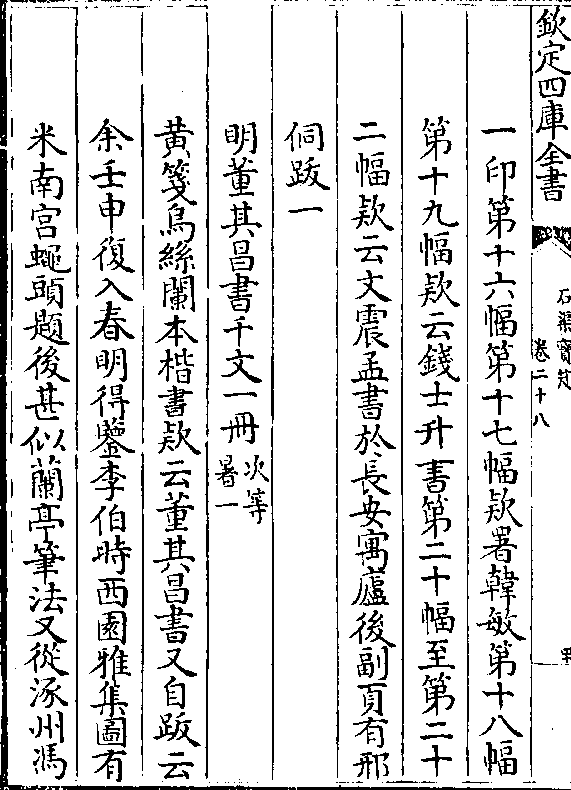 欽定四庫全書
石渠寶笈
卷二十八
一印第十六幅第十七幅欵署韓敏第十八幅
第十九幅欵云錢士升書第二十幅至第二十
二幅欵云文震孟書於長安寓廬後副頁有邢
侗跋一
明董其昌書千文一冊次等
暑一
黃箋烏絲闌本楷書欵云董其昌書又自跋云
余壬申復入春明得鑒李伯時西園雅集圖有
米南宮蠅頭題後甚似蘭亭筆法又從涿州馮